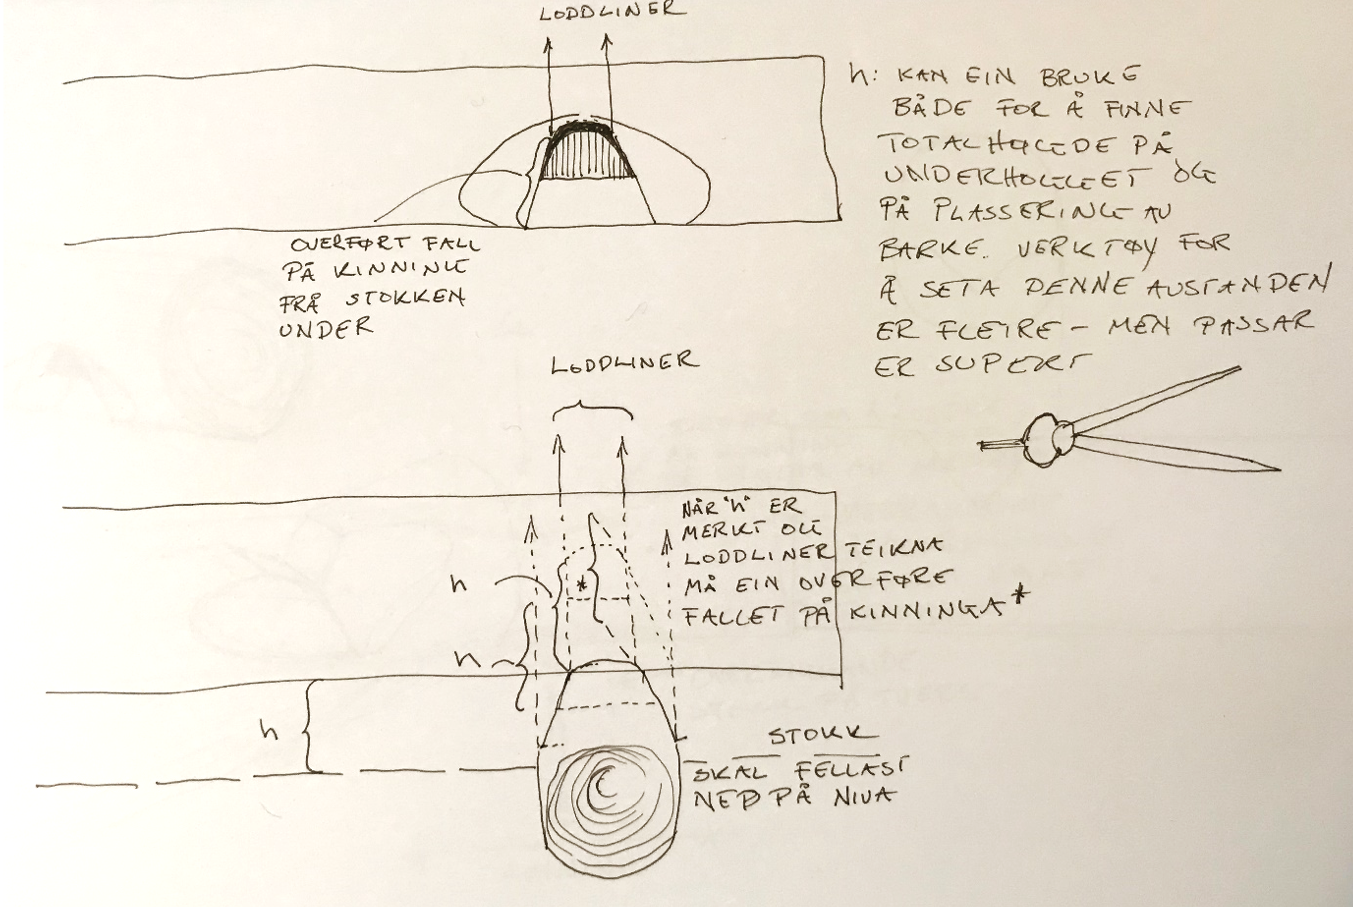 LODDLINER
h: KAN EIN BRUKE
BÅDE FOR Å FINNE
TOTALHØGDE PÅ
UNDERHOGGET OG
PÅ PLASSERING AV
BARKE. VERKTØY FOR
Å SETA DENNE AVSTANDEN
ER FLEIRE - MEN PASSAR
ER SUPERT
OVERFØRT FALL
PÅ KINNING
FRÅ STOKKEN
UNDER
LODDLINER
NÅR "h" ER
MERKT OG
LODDLINER TEIKNA
MÅ EIN OVERFØRE
FALLET PÅ KINNINGA*
h
*
h
h
STOKK
SKAL FELLAST
NED PÅ NIVA